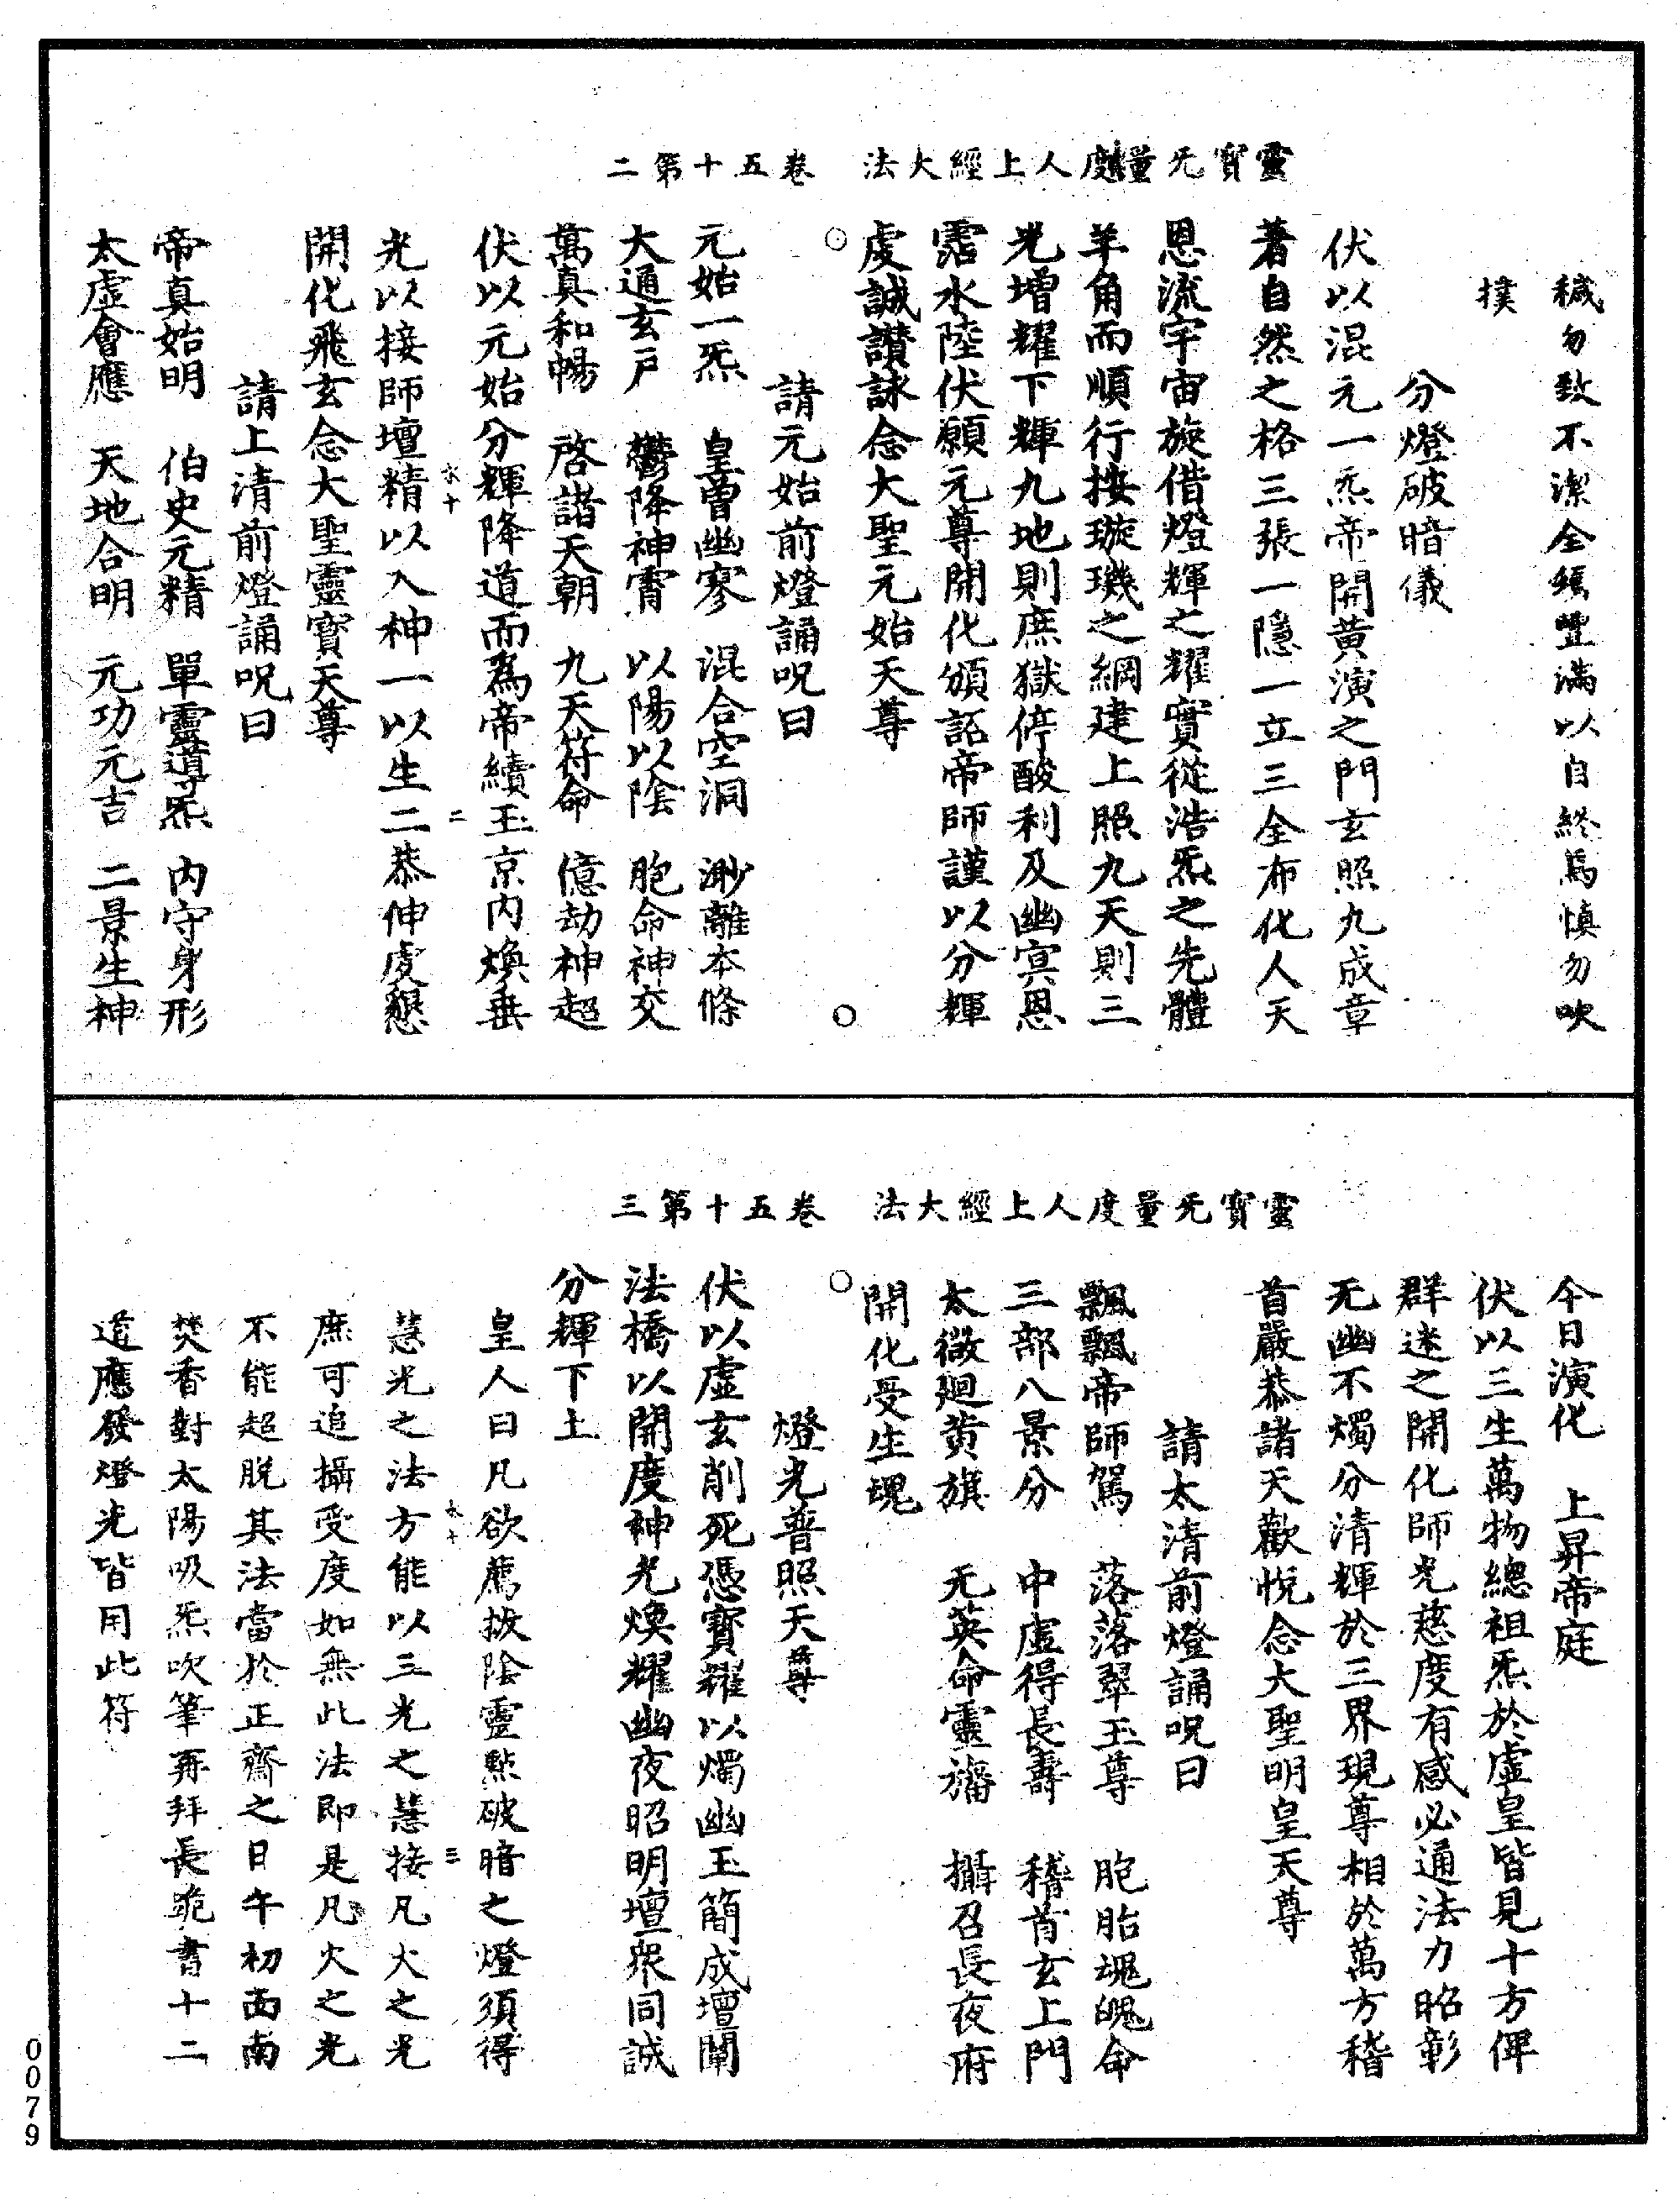 靈寶无量度人上經大法　卷五十第二
穢勿致不潔全須豐滿以自終焉慎勿吹
撲
分燈破暗儀
伏以混元一炁帝開黃演之門玄照九成章
著自然之格三張一隱一立三全布化人天
恩流宇宙旋借燈輝之耀實從浩炁之先體
羊角而順行按璇璣之綱建上照九天則三
光增耀下輝九地則庶獄停酸利及幽冥恩
霑水陸伏願元尊開化頒詔帝師謹以分輝
虔誠讚詠念大聖元始天尊
請元始前燈誦呪曰
元始一炁　皇曾幽寥　混合空洞　渺離本條
大通玄戶　鬱降神霄　以陽以陰　胞命神交
萬真和暢　啓諸天朝　九天符命　億劫神超
伏以元始分輝降道而為帝續玉京內煥垂
光以接師壇精以入神一以生二恭伸虔懇
開化飛玄念大聖靈寶天尊
請上清前燈誦呪曰
帝真始明　伯史元精　單靈導炁　內守身形
太虛會應　天地合明　元功元吉　二景生神
靈寶无量度人上經大法　卷五十第三
今日演化　上昇帝庭
伏以三生萬物總祖炁於虛皇皆見十方俾
群迷之開化師光慈度有感必通法力昭彰
无幽不燭分清輝於三界現尊相於萬方稽
首嚴恭諸天歡悅念大聖明皇天尊
請太清前燈誦呪曰
飄飄帝師駕　落落翠玉尊　胞胎魂魄命
三部八景分　中虛得長壽　稽首玄上門
太微廻黃旗　无英命靈旛　攝召長夜府
開化受生魂
燈光普照天尊
伏以虛玄削死憑寶耀以燭幽玉簡成壇闡
法橋以開度神光煥耀幽夜昭明壇眾同誠
分輝下土
皇人曰凡欲薦拔陰靈點破暗之燈須得
慧光之法方能以三光之慧接凡火之光
庶可追攝受度如無此法即是凡火之光
不能超脫其法當於正齋之日午初面南
焚香對太陽吸炁吹筆再拜長跪書十二
道應發燈光皆用此符
0079